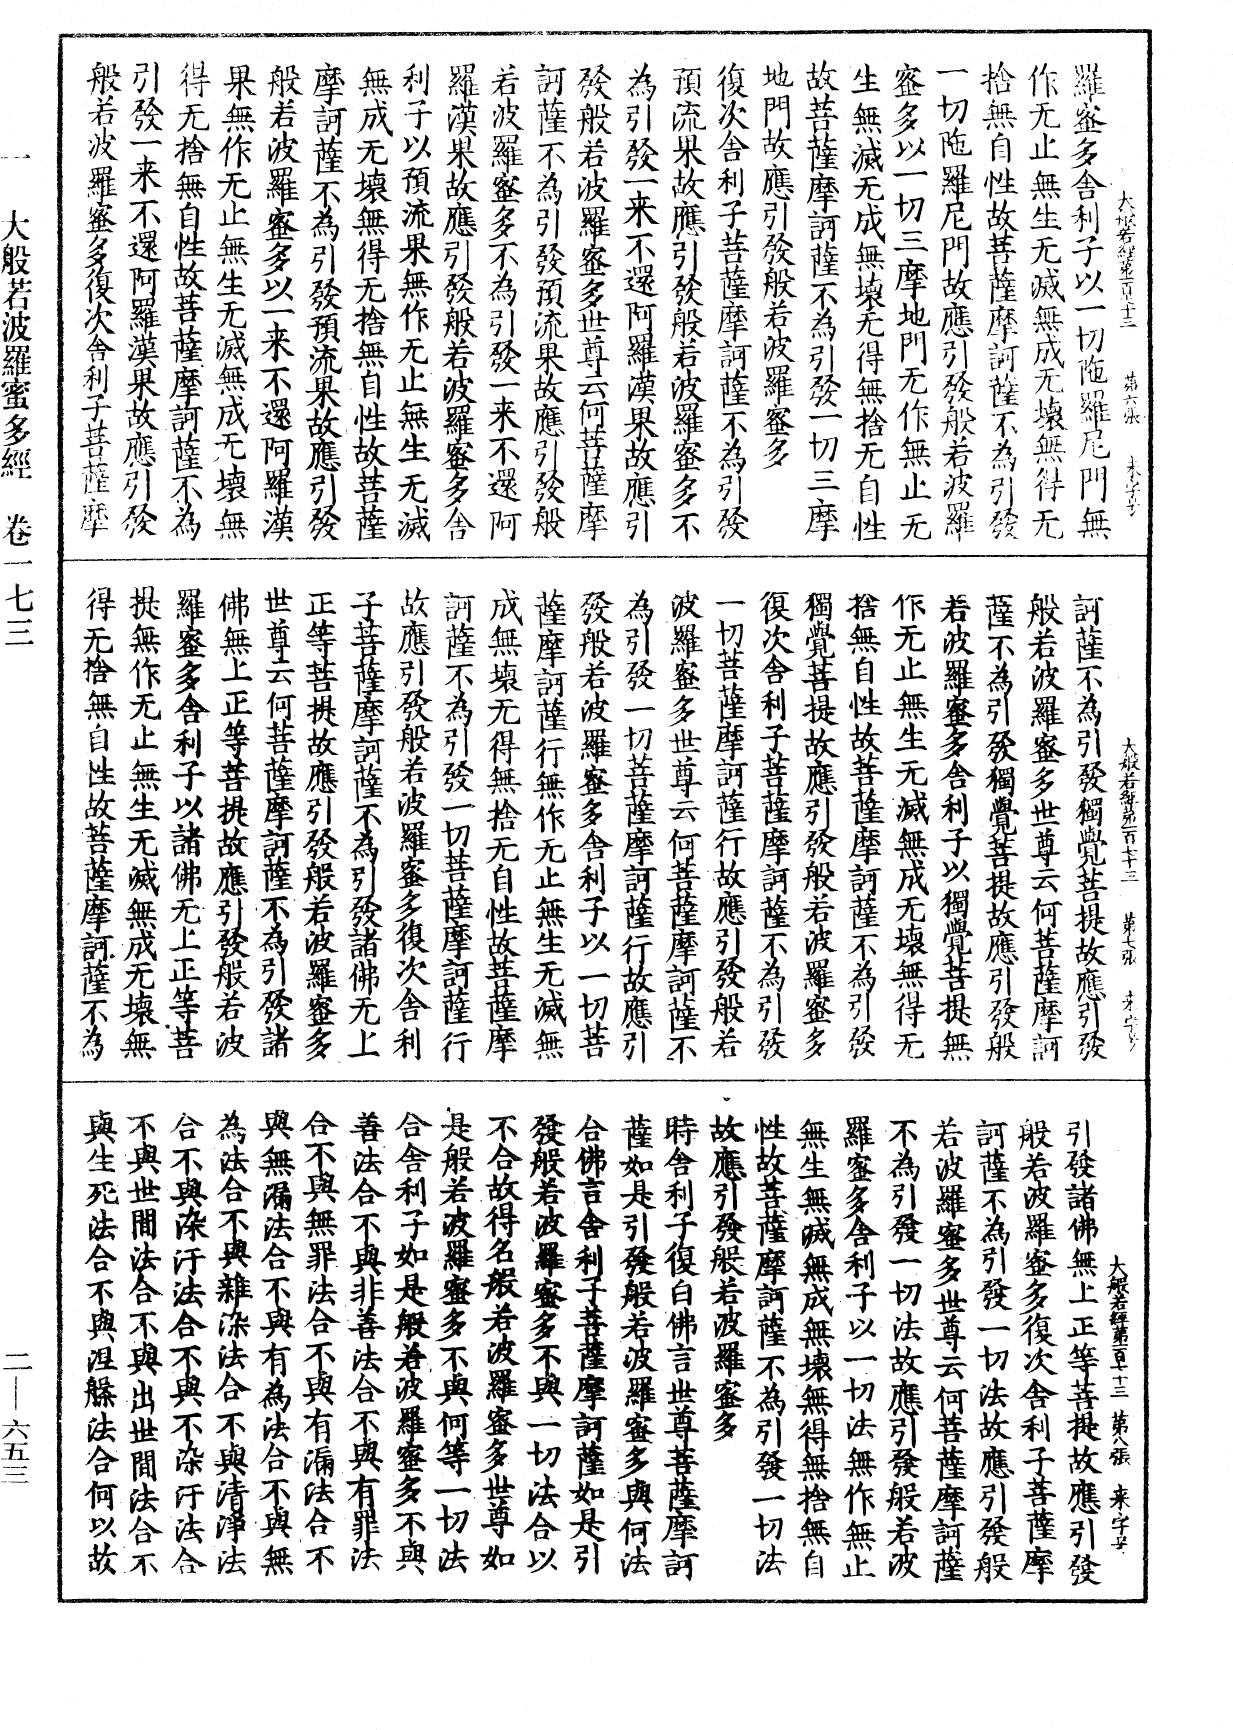 大般若經第一百七十三 第六張 來字号
羅蜜多舍利子以一切陁羅尼門無
作无止無生无滅無成无壞無得无
捨無自性故菩薩摩訶薩不為引發
一切陁羅尼門故應引發般若波羅
蜜多以一切三摩地門无作無止无
生無滅无成無壞无得無捨无自性
故菩薩摩訶薩不為引發一切三摩
地門故應引發般若波羅蜜多
復次舍利子菩薩摩訶薩不為引發
預流果故應引發般若波羅蜜多不
為引發一來不還阿羅漢果故應引
發般若波羅蜜多世尊云何菩薩摩
訶薩不為引發預流果故應引發般
若波羅蜜多不為引發一來不還阿
羅漢果故應引發般若波羅蜜多舍
利子以預流果無作无止無生无滅
無成无壞無得无捨無自性故菩薩
摩訶薩不為引發預流果故應引發
般若波羅蜜多以一来不還阿羅漢
果無作无止無生无滅無成无壞無
得无捨無自性故菩薩摩訶薩不為
引發一来不還阿羅漢果故應引發
般若波羅蜜多復次舍利子菩薩摩
大般若經第一百七十三 第七張 来字号
訶薩不為引發獨覺菩提故應引發
般若波羅蜜多世尊云何菩薩摩訶
薩不為引發獨覺菩提故應引發般
若波羅蜜多舍利子以獨覺菩提無
作无止無生无滅無成无壞無得无
捨無自性故菩薩摩訶薩不為引發
獨覺菩提故應引發般若波羅蜜多
復次舍利子菩薩摩訶薩不為引發
一切菩薩摩訶薩行故應引發般若
波羅蜜多世尊云何菩薩摩訶薩不
為引發一切菩薩摩訶薩行故應引
發般若波羅蜜多舍利子以一切菩
薩摩訶薩行無作无止無生无滅無
成無壞无得無捨无自性故菩薩摩
訶薩不為引發一切菩薩摩訶薩行
故應引發般若波羅蜜多復次舍利
子菩薩摩訶薩不為引發諸佛无上
正等菩提故應引發般若波羅蜜多
世尊云何菩薩摩訶薩不為引發諸
佛無上正等菩提故應引發般若波
羅蜜多舍利子以諸佛无上正等菩
提無作无止無生无滅無成无壞無
得无捨無自性故菩薩摩訶薩不為
大般若經第一百七十三 第八張 来字号
引發諸佛無上正等菩提故應引發
般若波羅蜜多復次舍利子菩薩摩
訶薩不為引發一切法故應引發般
若波羅蜜多世尊云何菩薩摩訶薩
不為引發一切法故應引發般若波
羅蜜多舍利子以一切法無作無止
無生無滅無成無壞無得無捨無自
性故菩薩摩訶薩不為引發一切法
故應引發般若波羅蜜多
時舍利子復白佛言世尊菩薩摩訶
薩如是引發般若波羅蜜多與何法
合佛言舍利子菩薩摩訶薩如是引
發般若波羅蜜多不與一切法合以
不合故得名般若波羅蜜多世尊如
是般若波羅蜜多不與何等一切法
合舍利子如是般若波羅蜜多不與
善法合不與非善法合不與有罪法
合不與無罪法合不與有漏法合不
與無漏法合不與有為法合不與無
為法合不與雜染法合不與清淨法
合不與染汙法合不與不染汙法合
不與世間法合不與出世間法合不
與生死法合不與涅槃法合何以故
一 大般若波羅蜜多經 卷一七三 二—六五三